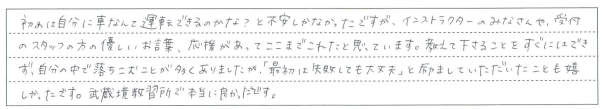 初めは自分に車なんて運転できるのかな？と不安しかなかったですが、インストラクターのみなさんや、受付
のスタッフの方の優しいお言葉、応援があってここまでこれたと思っています。教えて下さることをすぐにはでき
ず、自分の中で落ちこむことが多くありましたが、「最初は失敗しても大丈夫」と励ましていただいたことも嬉
しかったです。武蔵境教習所で本当に良かったです。